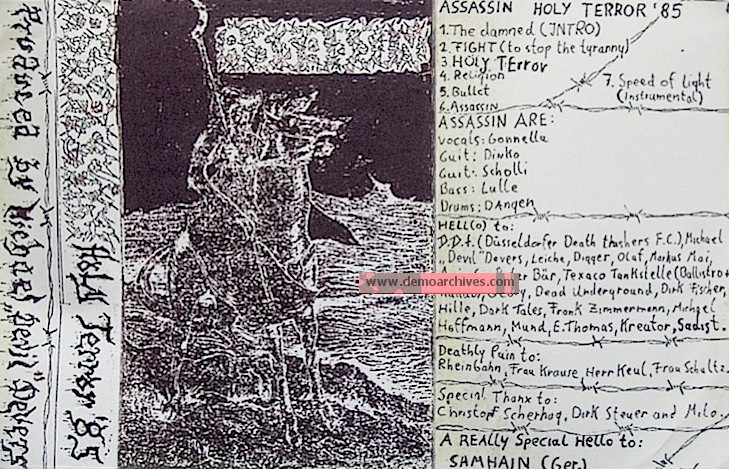 Produced by Michael "Devil" Devers
Holy Terror '85
ASSASSIN HOLY TERROR '85
1. The damned (INTRO)
2. FIGHT (to stop the tyranny)
3 HOLY TError
4. Religion
5. Bullet
6. Assassin
7. Speed of Light
(instrumental)
ASSASSIN ARE:
vocals: Gonnella
Guit: Dinko
Guit. Scholli
Bass: Lulle
Drums: DAngen
HELL(O) to:
D.D.t. (Düsseldorfer Death thashers F.C.), Michael
„Devil" Devers, Leiche, Digger, Olaf, Markus Mai,
Bär, Texaco Tankstelle (Ballistro+
www.demoarchives.com
Dead Underground, Dirk Fischer,
Hille, Dark Tales, Frank Zimmermann, Michael
Hoffmann, Mund, E.Thomas, Kreator, Sadist.
Deathly Pain to:
Rheinbahn, Frau Krause, Herr Keul, Frau Schultz.
Special Thanx to:
Christoph Scherhag, Dirk Steuer and Milo.
A REALLy Special Hello to:
SAMHAIN (Ger.)